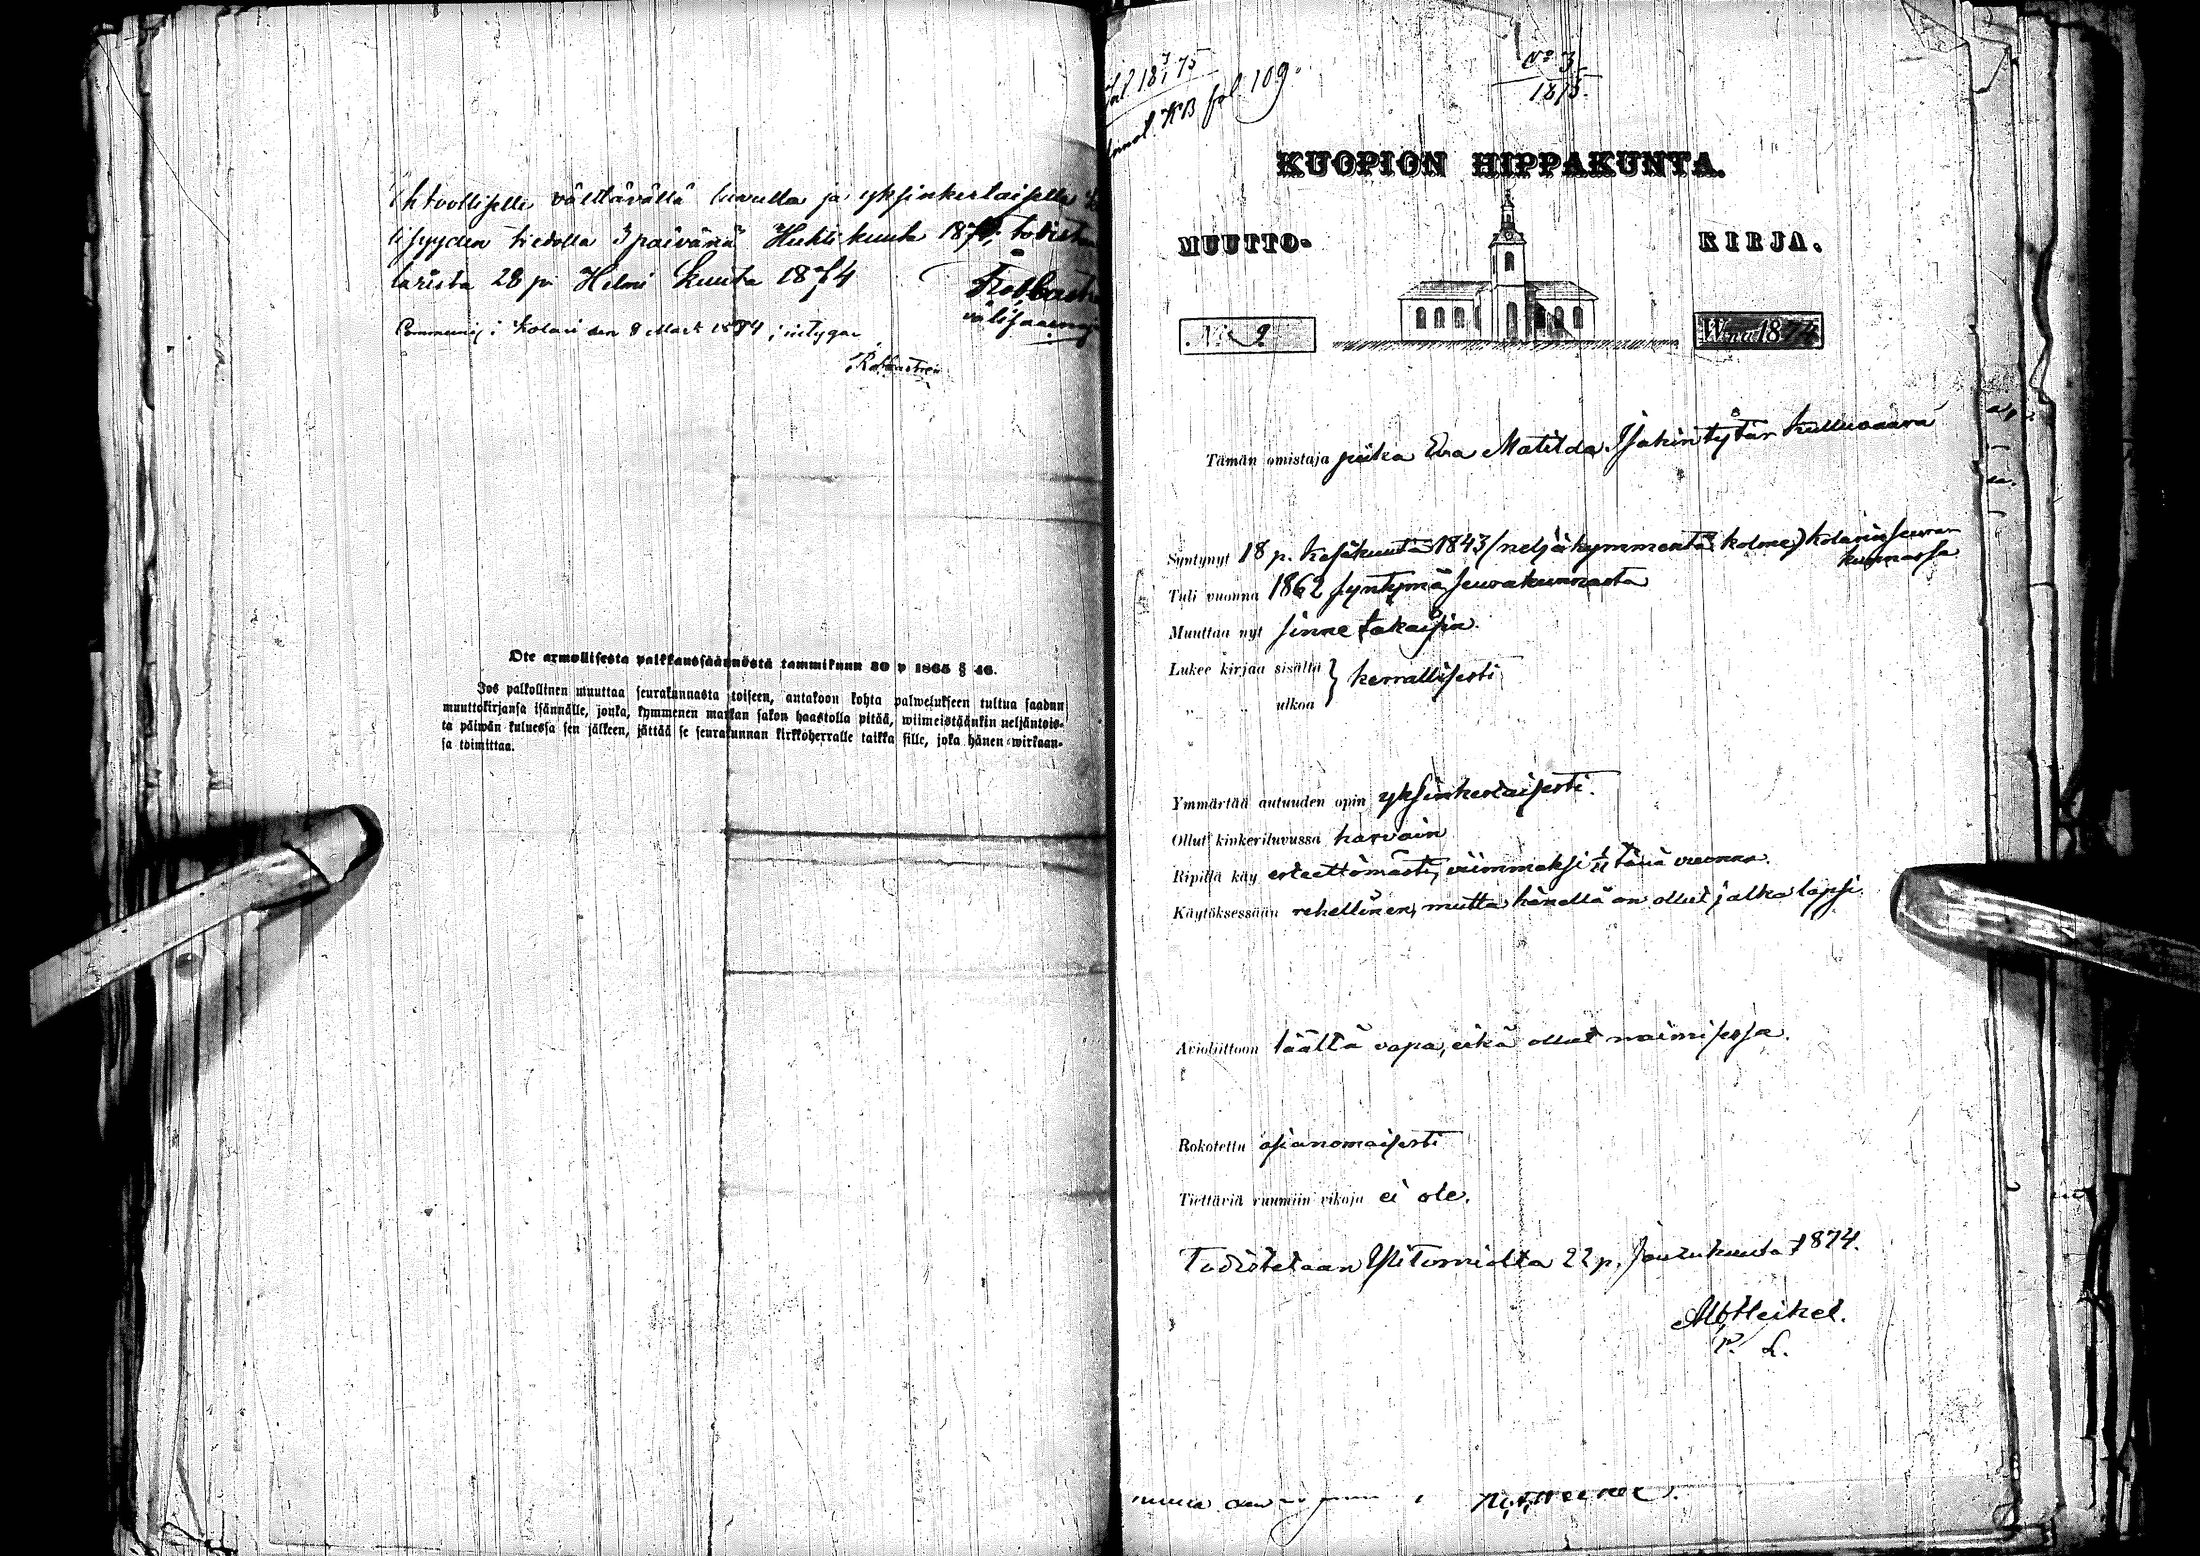 välttävällä luvulla ja yksinkertaisella
tiedolla 3 päivänä Huhtikuuta
28 p. Helmi kuuta 1874
i Kolari den 8 Mars 1874, intygar
Ote armollisesta palkkaussäännöstä tammikuun 30 p 1865 § 46.
Jos palkollinen muuttaa seurakunnasta toiseen, antakoon kohta palwelukseen tultua saadun
muuttokirjansa isännälle, jonka, kymmenen markan sakon haastolla pitää, wiimeistäänkin neljäntois-
ta päiwän kuluessa sen jälkeen, jättää se seurakunnan kirkkoherralle taikka sille, joka hänen wirkaan-
sa toimittaa.
KB fol 109.
No 3
1875.
KUOPION HIPPAKUNTA.
MUUTTO- KIRJA.
No 2
Wnna 1874
Tämän omistaja piika Eva Matilda Isakin tytär
Syntynyt 18 p. Kesäkuuta 1843 (neljäkymmentä kolme) Kolarin seura-
kunnassa
Tuli vuonna 1862 syntymä seurakunnasta
Muuttaa nyt sinne takaisin.
Lukee kirjaa sisältä } kerrallisesti
" " ulkoa
Ymmärtää autuuden opin yksinkertaisesti.
Ollut kinkeriluvussa harvoin
Ripillä käy esteettömästi, viimmeksi 1/11 tänä vuonna.
Käytöksessään rehellinen, mutta hänellä on ollut jalka lapsi.
Avioliittoon täältä vapa, eikä ollut naimisessa.
Rokotettu asianomaisesti
Tiettäviä ruumiin vikoja ei ole.
Todistetaan Ylitorniolta 22 p. Joulukuuta 1874.
Alb Heikel.
P. L.